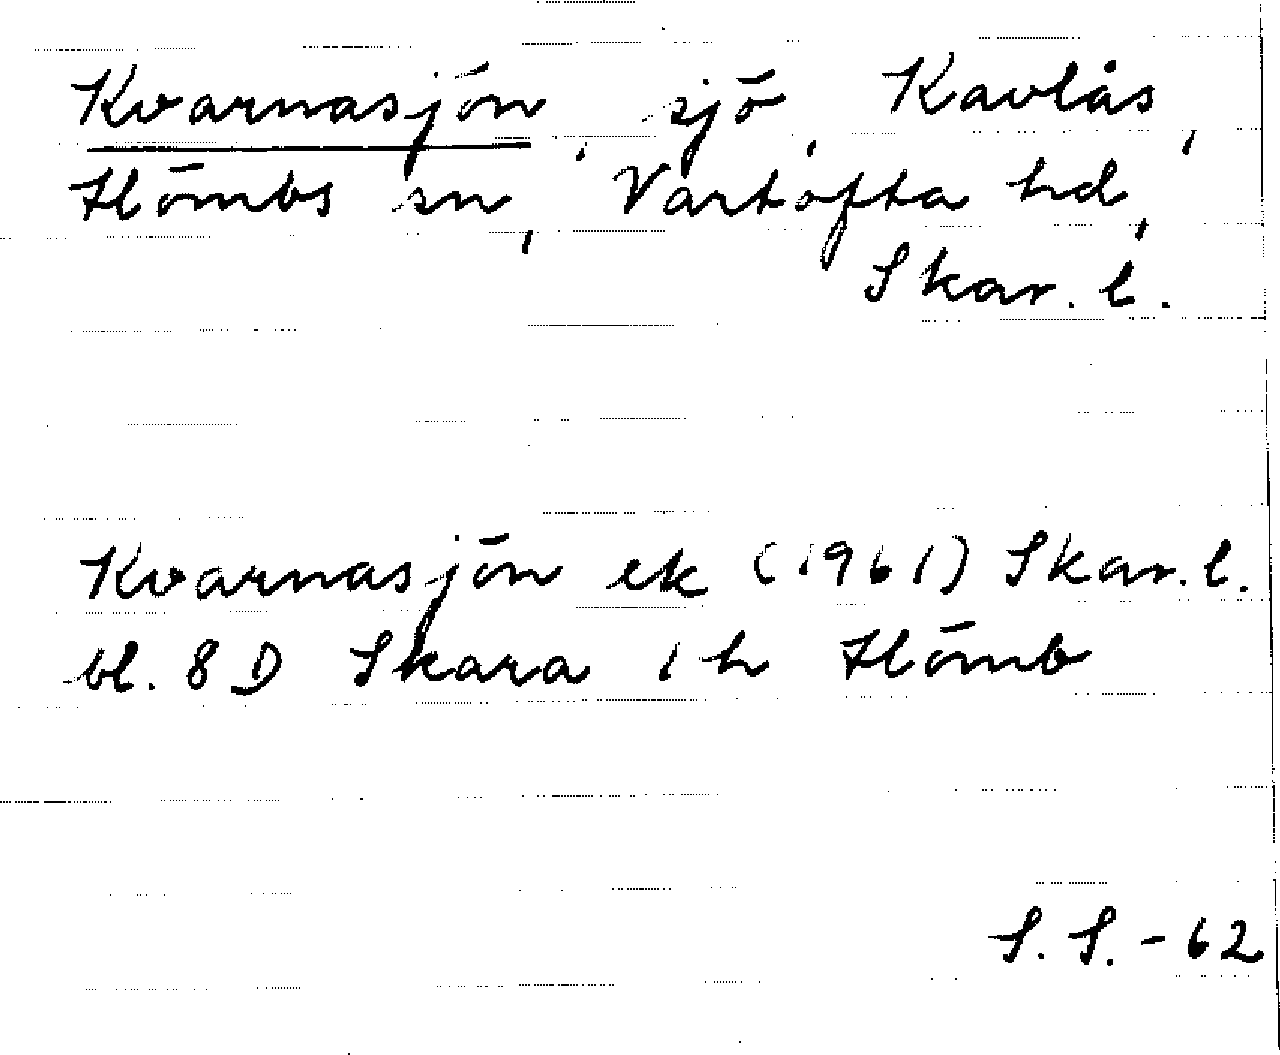 Kvarnasjön, sjö, Kavlås,
Hömbs sn, Vartofta hd,
Skar. l.
Kvarnasjön ek (1961) Skar. l.
bl. 8 D Skara 1 h Hömb
S. S. - 62